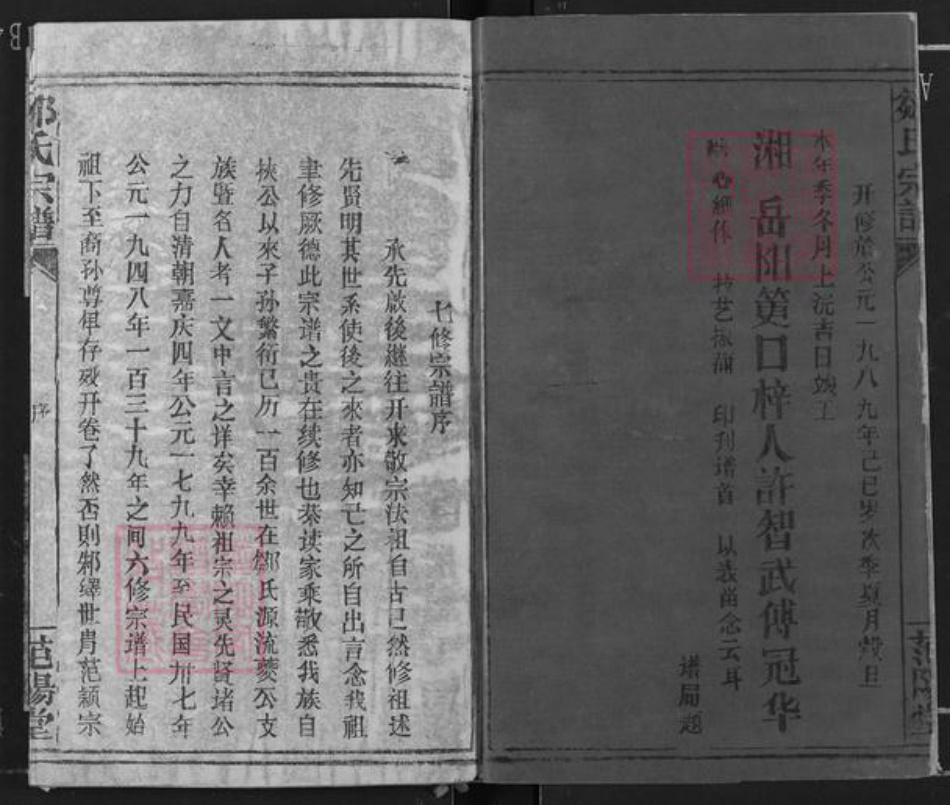 开修於公元一九八九年己巳岁次季夏月榖旦
本年季冬月上浣吉日竣工
湘岳阳筻口梓人許智武傅冠华
心细休 技艺 印刊谱首 以表留念云耳
谱局题
鄒氏宗譜
范陽堂
七修宗譜序
承先啟後继往开来敬宗法祖自古已然修祖述
先贤明其世系使後之來者亦知己之所自出言念我祖
聿修厥德此宗谱之贵在续修也恭读家乘敬悉我族自
挾公以來子孙繁衍已历一百余世在鄒氏源流夔公支
族暨名人考一文中言之详矣幸赖祖宗之灵先贤诸公
之力自清朝嘉庆四年公元一七九九年至民国卅七年
公元一九四八年一百三十九年之间六修宗谱上起始
祖下至裔孙尊卑存殁开卷了然否則邾繹世胄范颖宗
鄒氏宗譜
序
范陽堂